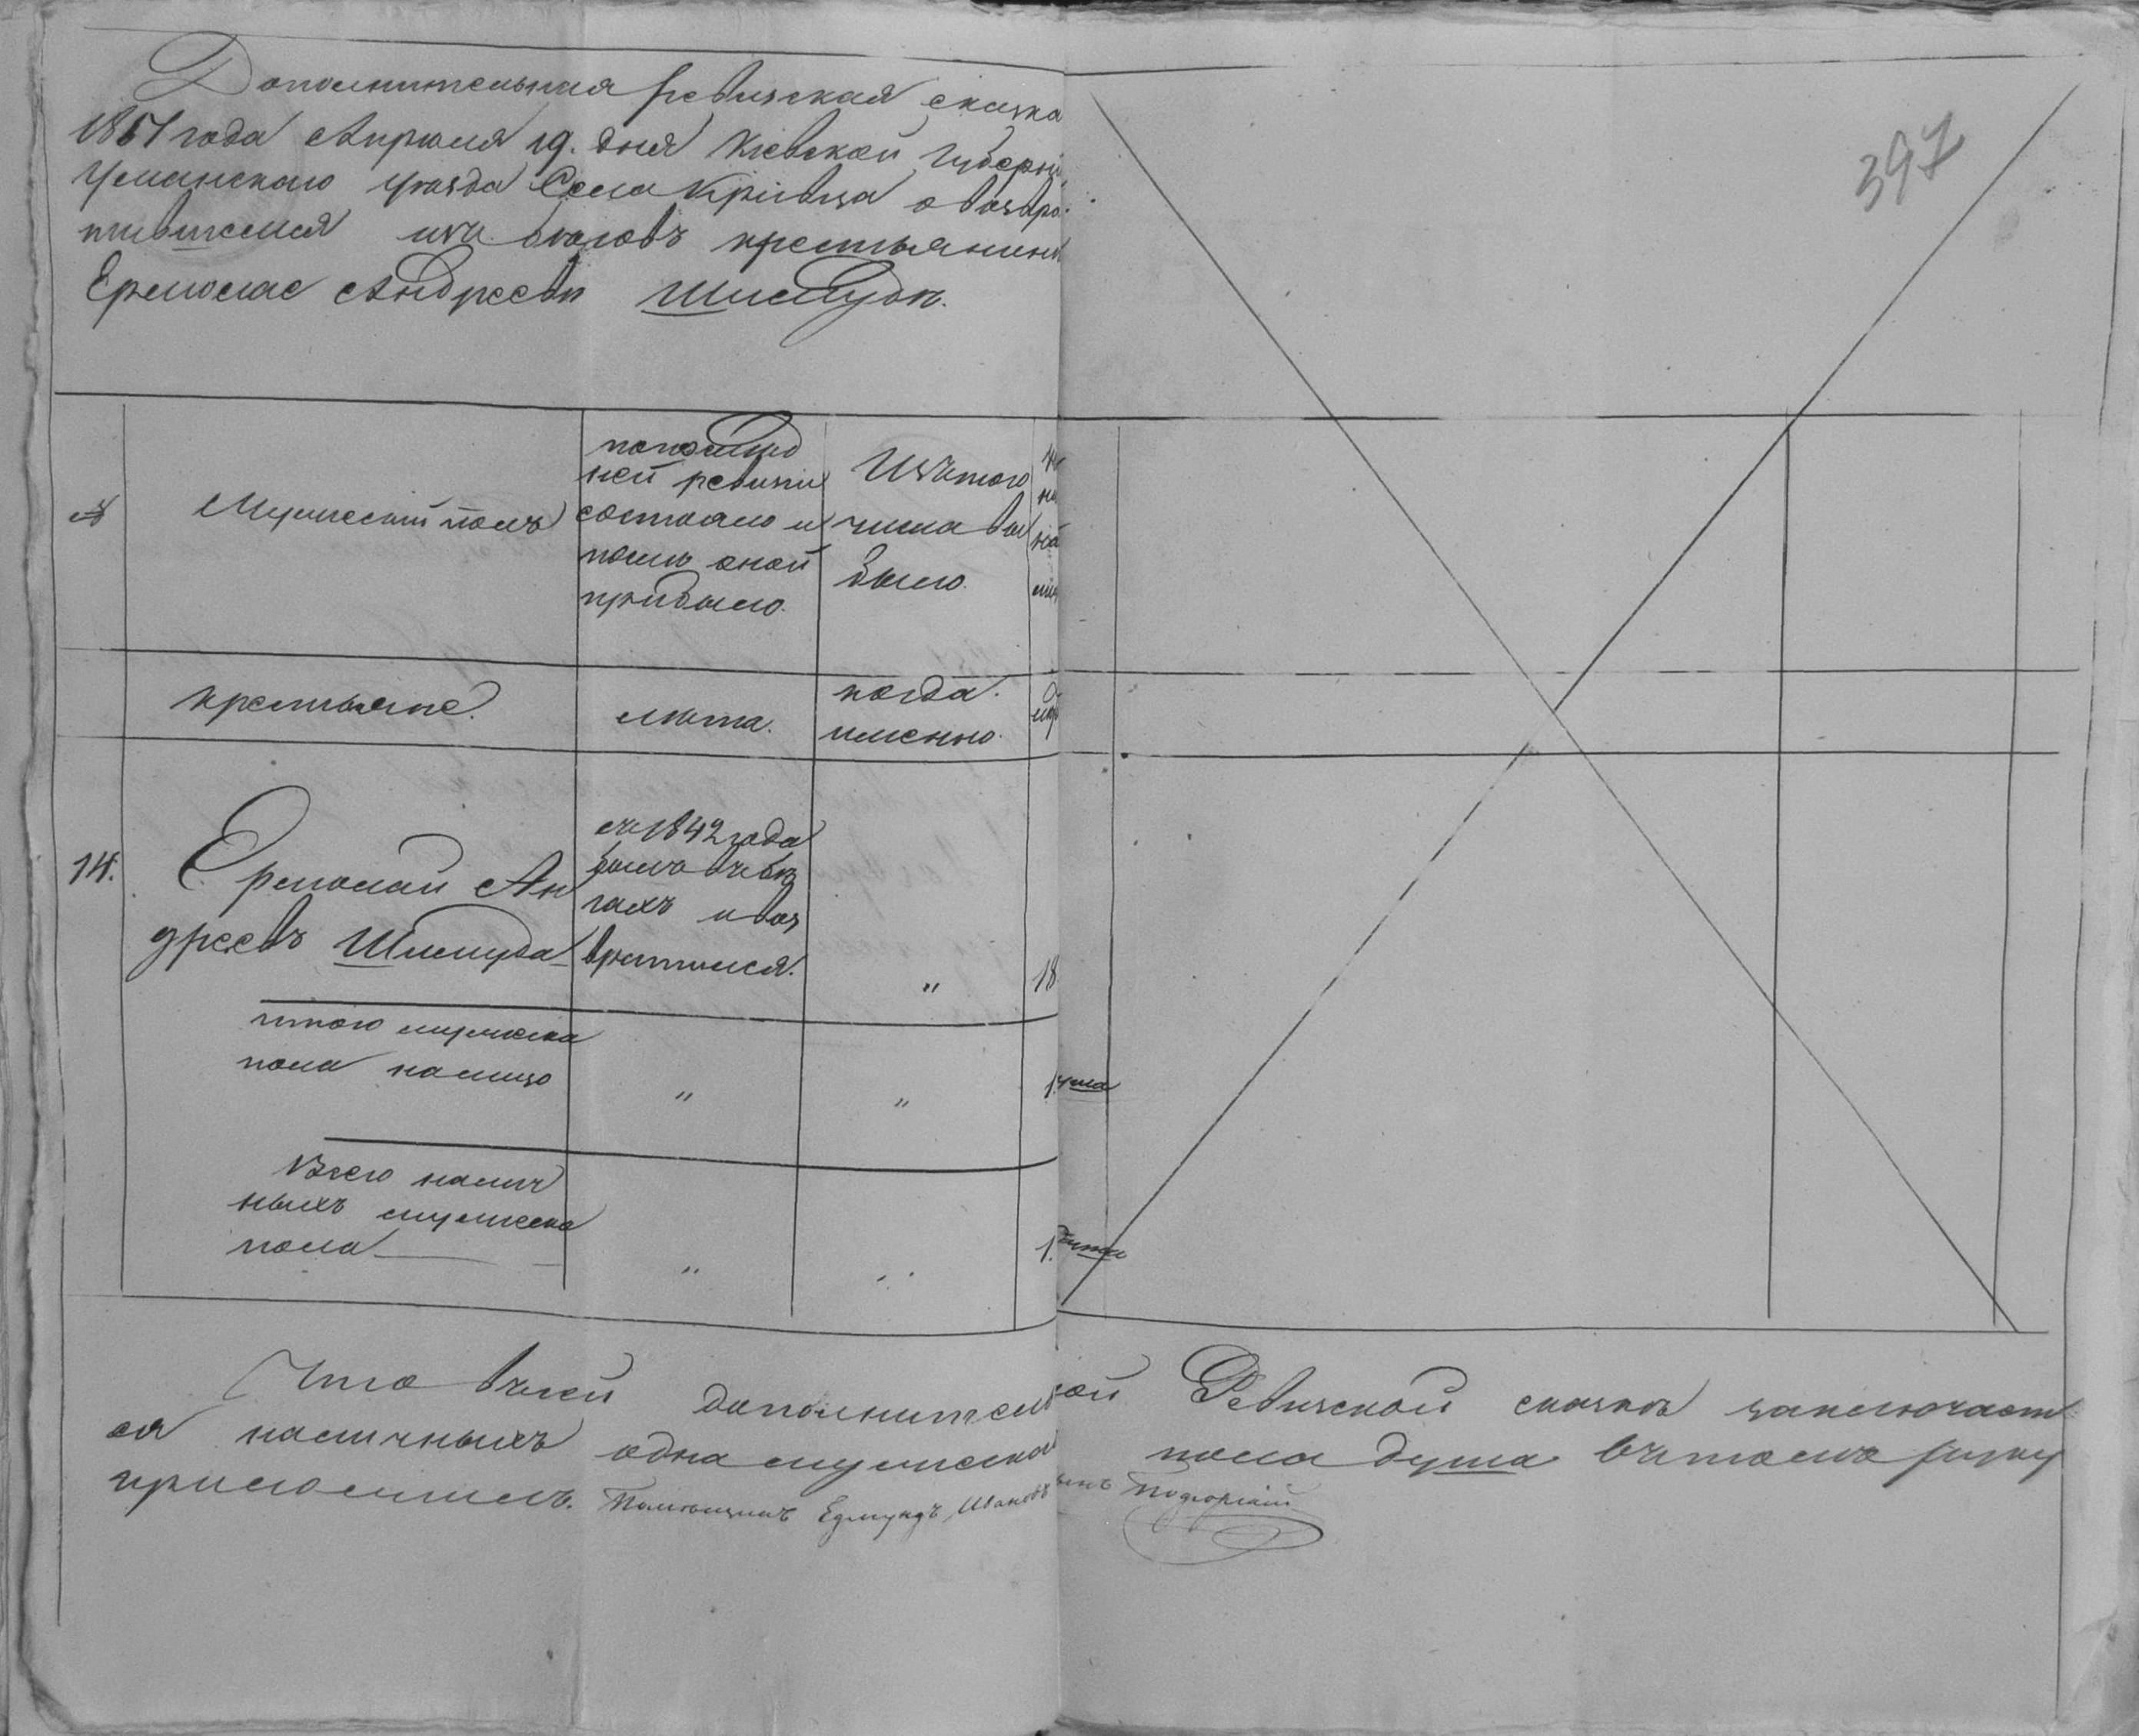 Дополнительная ревизская сказка
1851 года Апреля 19. дня Киевской Губерніи,
Уманскаго уезда Села Кривца о возвра-
тившемся изъ беговъ крестьянинѣ
Ермолае Андрееве Шмыгуде.
397
№
Мужеский полъ
по послед
ней ревизіи
состояло и
после оной
прибыло.
Изъ того
числа вы
было.
крестьяне.
лета.
когда
именно.
14.
Ермолай Ан
дреевъ
съ 1842 года
былъ въ бе
гахъ и воз
вратился.
"
18
итого мужеска
пола налицо
"
"
1.
Всего налич
ныхъ мужеска
пола
"
"
1.
Что въ сей дополнительной Ревизской сказке заключает
ся наличныхъ одна мужеска пола душа въ томъ руку
приложилъ. Помещикъ Едмундъ Ивановъ сынъ Подгорскій